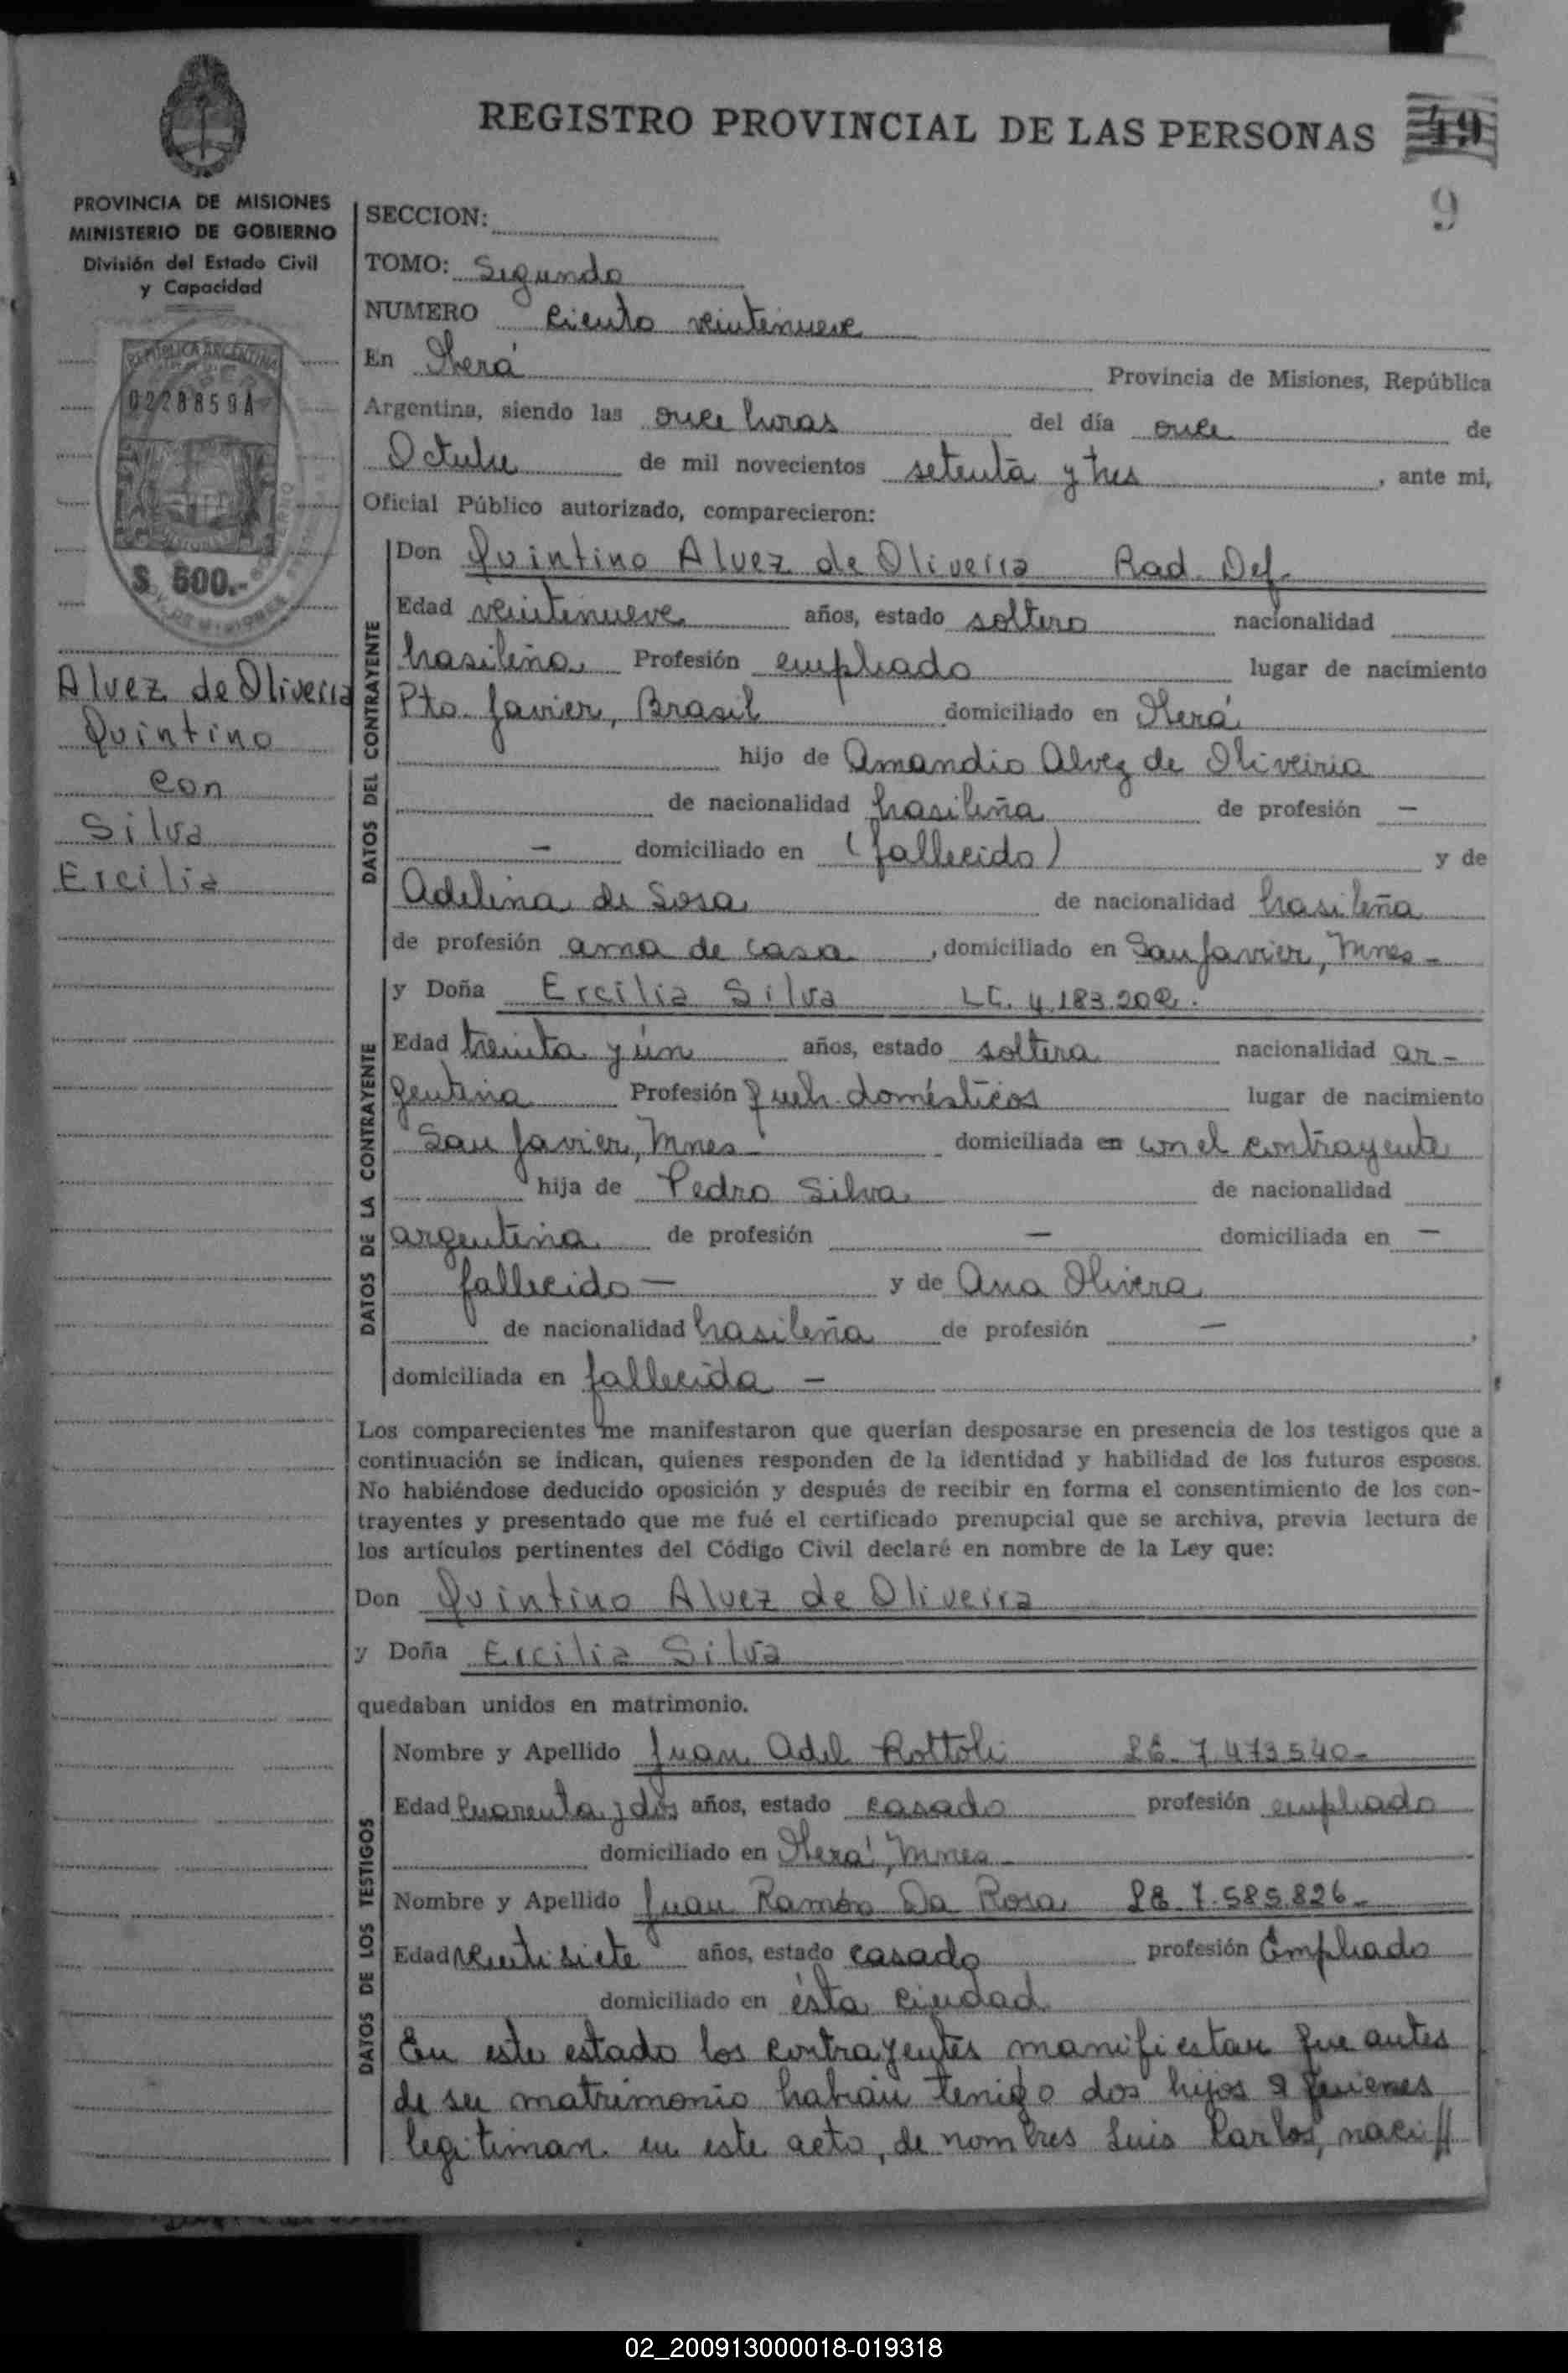 REGISTRO PROVINCIAL DE LAS PERSONAS 49
9
PROVINCIA DE MISIONES
MINISTERIO DE GOBIERNO
División del Estado Civil
y Capacidad
REPUBLICA ARGENTINA
0228859A
$ 500.-
Alvez de Oliveira
Quintino
con
Silva
Ercilia
SECCION:
TOMO: Segundo
NUMERO Ciento veintenueve
En Oberá Provincia de Misiones, República
Argentina, siendo las once horas del día once de
Octubre de mil novecientos setenta y tres, ante mi,
Oficial Público autorizado, comparecieron:
DATOS DEL CONTRAYENTE
Don Quintino Alvez de Oliveira Rad. Def.
Edad veintenueve años, estado soltero nacionalidad
brasileña Profesión empleado lugar de nacimiento
Pto. Javier, Brasil domiciliado en Oberá
hijo de Amandio Alvez de Oliveiria
de nacionalidad brasileña de profesión —
— domiciliado en (fallecido) y de
Adelina de Sosa de nacionalidad brasileña
de profesión ama de casa, domiciliado en San Javier, Mnes-
DATOS DE LA CONTRAYENTE
y Doña Ercilia Silva LC. 4.183.202.
Edad treinta y ún años, estado soltera nacionalidad ar-
gentina Profesión queh. domésticos lugar de nacimiento
San Javier, Mnes- domiciliada en con el contrayente
hija de Pedro Silva de nacionalidad
argentina de profesión — domiciliada en —
fallecido — y de Ana Olivera
de nacionalidad brasileña de profesión —,
domiciliada en fallecida —
Los comparecientes me manifestaron que querían desposarse en presencia de los testigos que a
continuación se indican, quienes responden de la identidad y habilidad de los futuros esposos.
No habiéndose deducido oposición y después de recibir en forma el consentimiento de los con-
trayentes y presentado que me fué el certificado prenupcial que se archiva, previa lectura de
los artículos pertinentes del Código Civil declaré en nombre de la Ley que:
Don Quintino Alvez de Oliveira
y Doña Ercilia Silva
quedaban unidos en matrimonio.
DATOS DE LOS TESTIGOS
Nombre y Apellido Juan Adel Rottoli LE. 7.473.540-
Edad Cuarenta y dos años, estado casado profesión empleado
domiciliado en Oberá, Mnes-
Nombre y Apellido Juan Ramón Da Rosa LE 7.585.826-
Edad veintisiete años, estado casado profesión Empleado
domiciliado en ésta ciudad
En este estado los contrayentes manifiestan que antes
de su matrimonio habían tenido dos hijos a quienes
legitiman en este acto, de nombres Luis Carlos, naci//
02_200913000018-019318